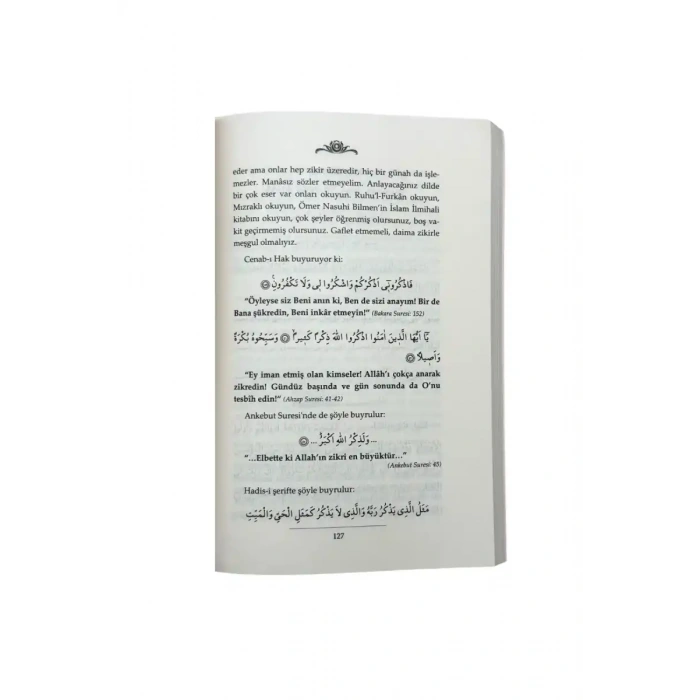 eder ama onlar hep zikir üzeredir, hiç bir günah da işle-
mezler. Manâsız sözler etmeyelim. Anlayacağınız dilde
bir çok eser var onları okuyun. Ruhu'l-Furkân okuyun,
Mızraklı okuyun, Ömer Nasuhi Bilmen'in İslam İlmihali
kitabını okuyun, çok şeyler öğrenmiş olursunuz, boş va-
kit geçirmemiş olursunuz. Gaflet etmemeli, daima zikirle
meşgul olmalıyız.
Cenab-ı Hak buyuruyor ki:
فَاذْكُرُونٖٓي اَذْكُرْكُمْ وَاشْكُرُوا لٖي وَلَا تَكْفُرُونِ
“Öyleyse siz Beni anın ki, Ben de sizi anayım! Bir de
Bana şükredin, Beni inkâr etmeyin!” (Bakara Suresi: 152)
يَٓا اَيُّهَا الَّذٖينَ اٰمَنُوا اذْكُرُوا اللّٰهَ ذِكْرًا كَثٖيرًا وَسَبِّحُوهُ بُكْرَةً
وَاَصٖيلًا
“Ey iman etmiş olan kimseler! Allâh'ı çokça anarak
zikredin! Gündüz başında ve gün sonunda da O'nu
tesbih edin!” (Ahzap Suresi: 41-42)
Ankebut Suresi'nde de şöyle buyrulur:
... وَلَذِكْرُ اللّٰهِ اَكْبَرُ ...
“...Elbette ki Allah'ın zikri en büyüktür...”
(Ankebut Suresi: 45)
Hadis-i şerifte şöyle buyrulur:
مَثَلُ الَّذِى يَذْكُرُ رَبَّهُ وَالَّذِى لَا يَذْكُرُ كَمَثَلِ الْحَيِّ وَالْمَيِّتِ
127